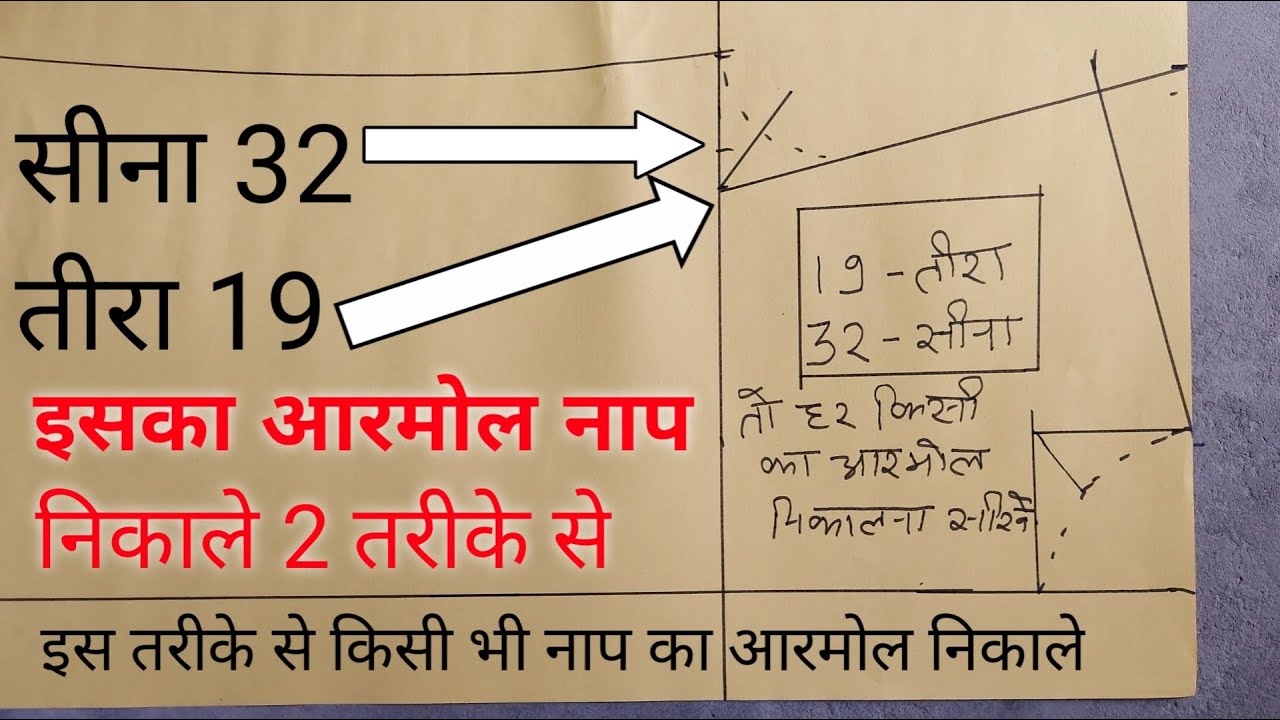 सीना 32
तीरा 19
इसका आरमोल नाप
निकाले 2 तरीके से
इस तरीके से किसी भी नाप का आरमोल निकाले
19 - तीरा
32 - सीना
तो हर किसी
का आरमोल
निकालना सीखें